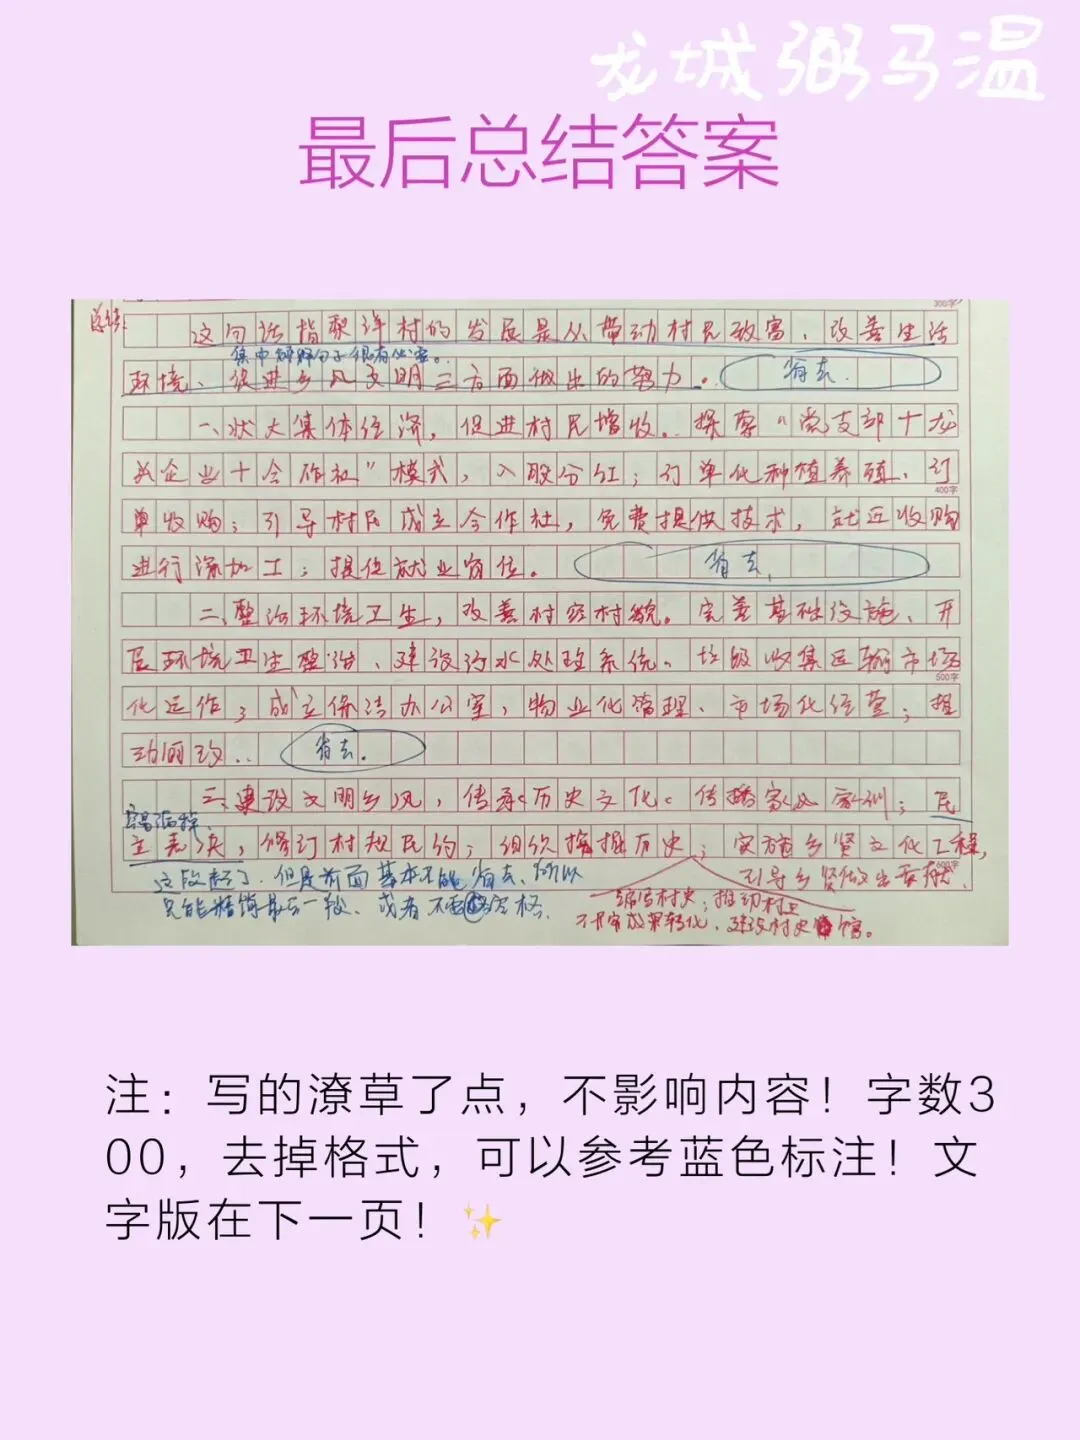 龙城弼马温
最后总结答案
300字
总结:
这句话指聚洋村的发展是从带动村民致富、改善生活
集中解释句子很有必要。
环境、促进乡风文明三方面做出的努力。
省去.
一、状大集体经济，促进村民增收。探索“党支部十龙
头企业十合作社”模式，入股分红；订单化种植养殖、订
400字
单收购；引导村民成立合作社，免费提供技术，就近收购
进行深加工；提供就业岗位。
省去.
二、整治环境卫生，改善村容村貌。完善基础设施、开
展环境卫生整治、建设污水处理系统。垃圾收集运输市场
500字
化运作；成立保洁办公室，物业化管理、市场化经营；推
动厕改..
省去.
三、建设文明乡风，传承历史文化。传播家风家训；民
立美浃，修订村规民约；组织挖掘历史；实施乡贤文化工程，
600字
这段超了，但是前面基本不能省去，所以
引导乡贤做出贡献.
只能精简最后一段、或者不写格.
编写村史；推动村上
成果转化、建设村史馆。
注：写的潦草了点，不影响内容！字数3
00，去掉格式，可以参考蓝色标注！文
字版在下一页！✨